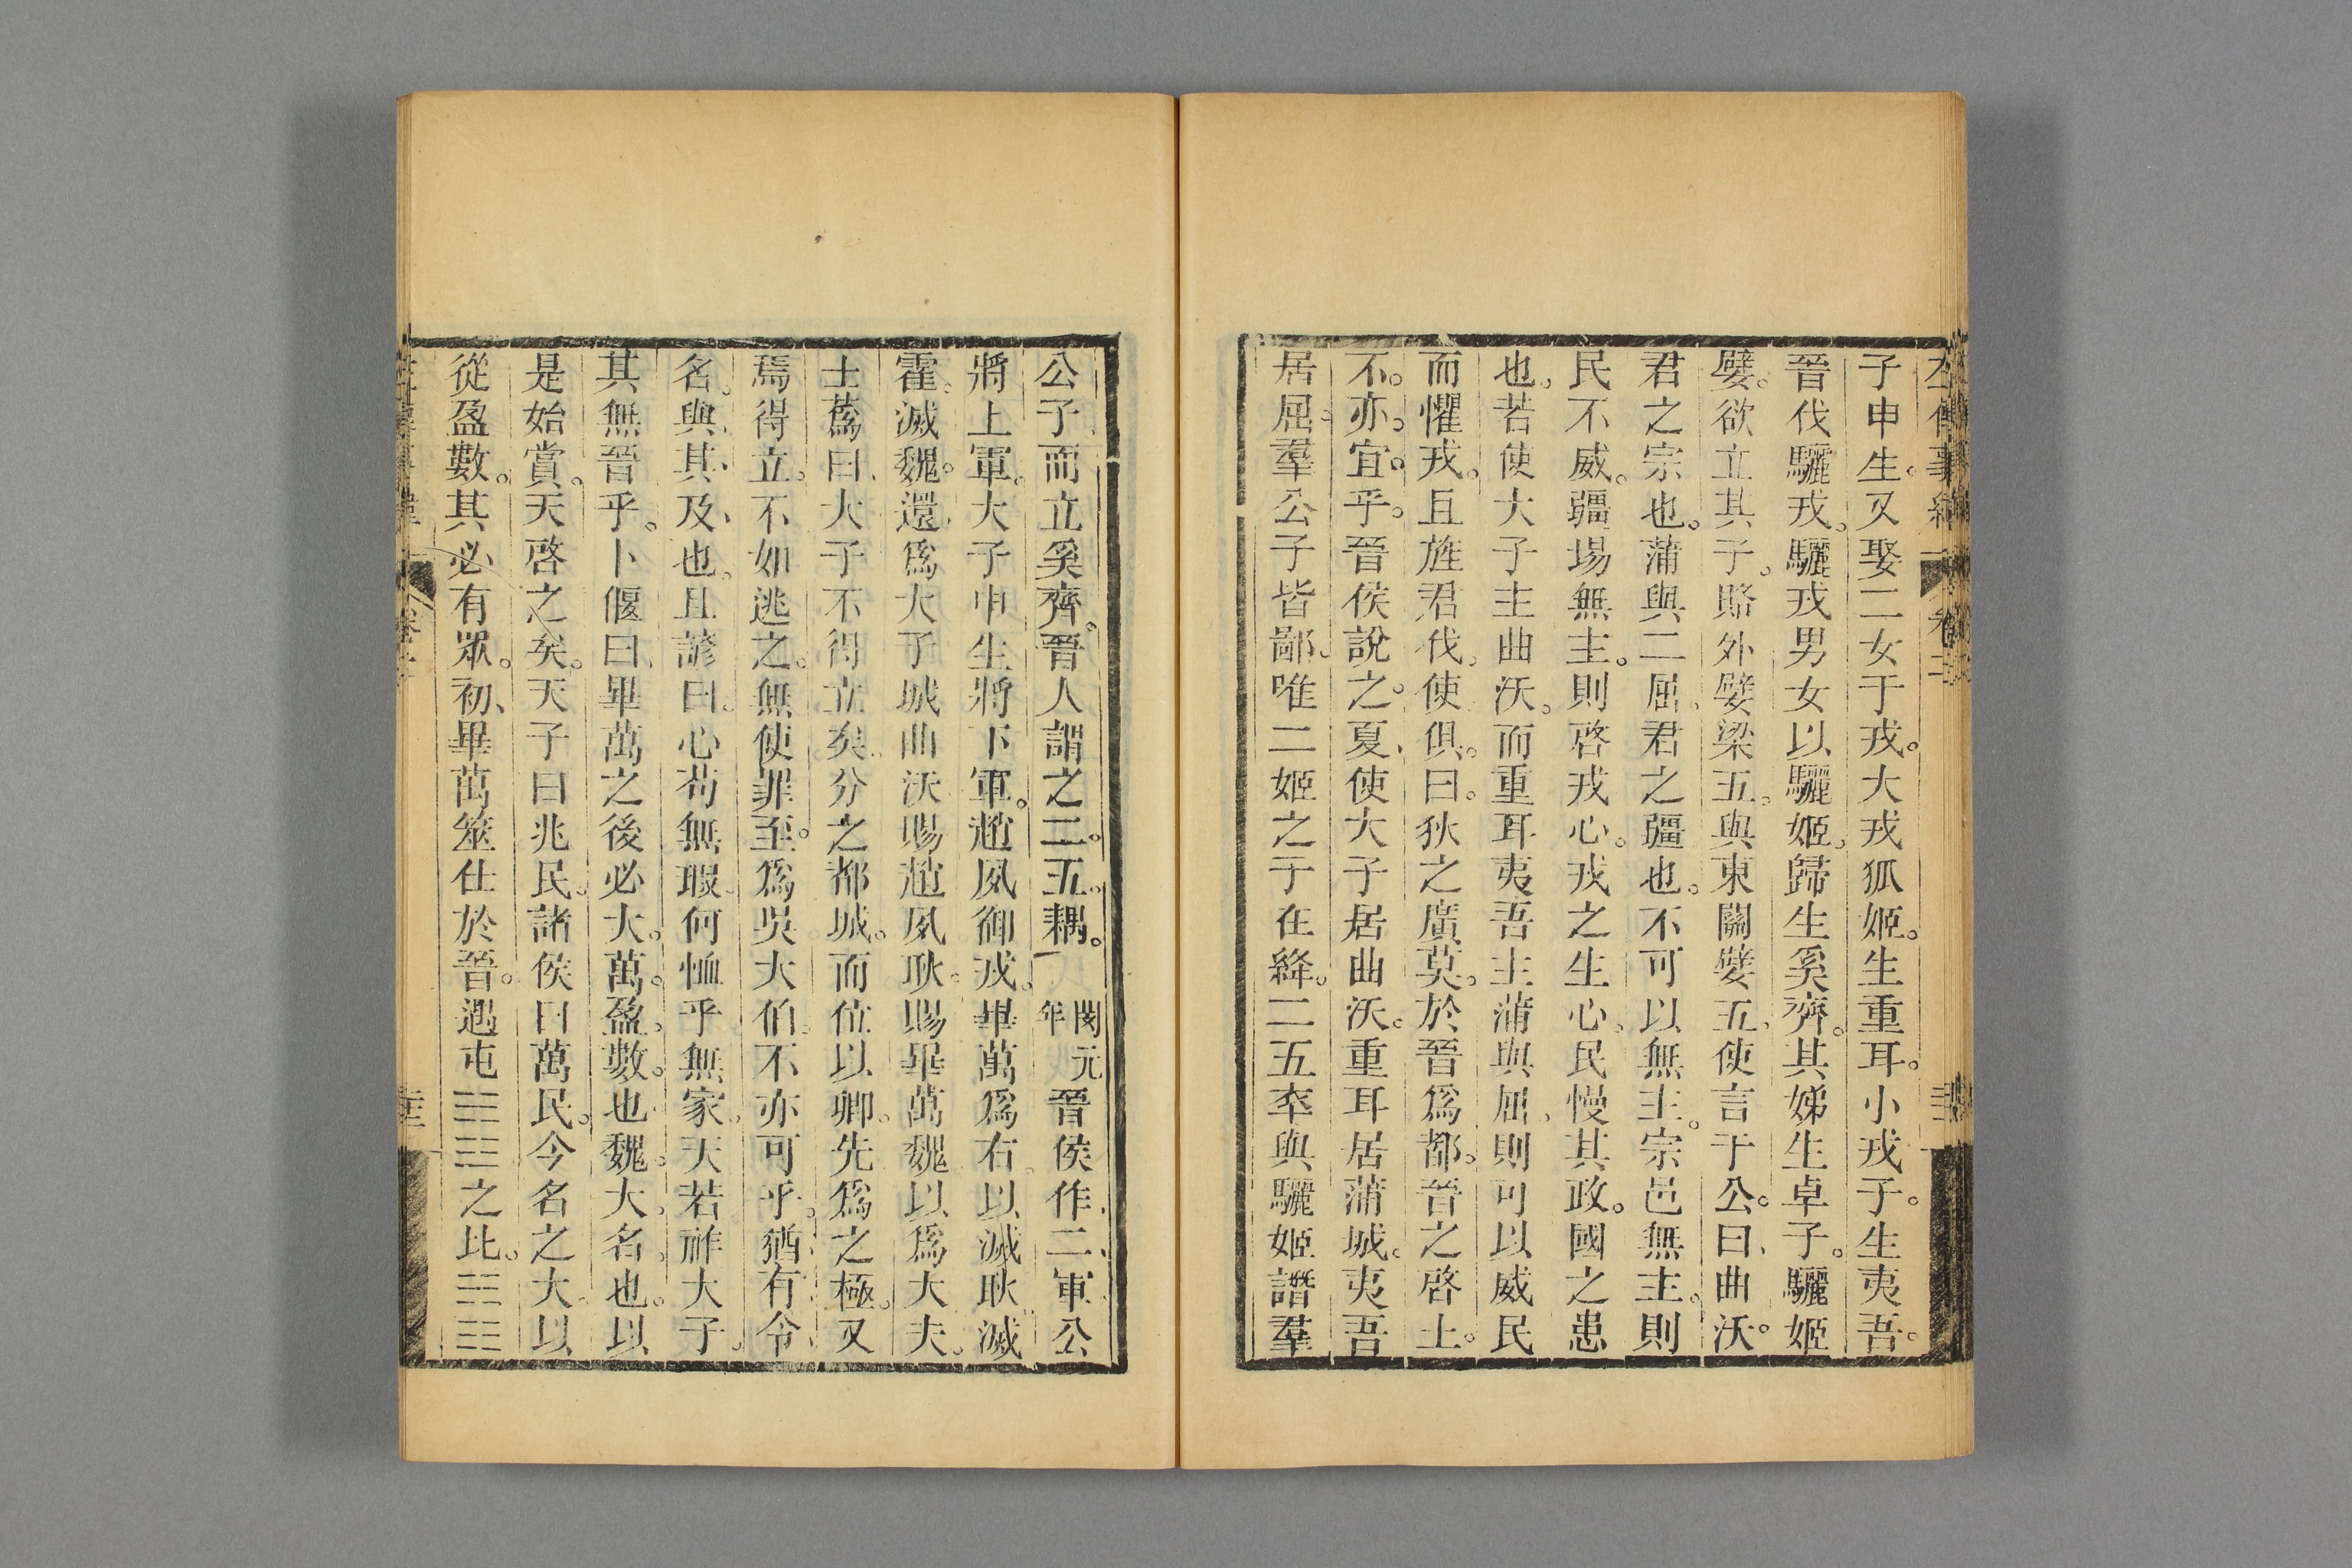 子申生。又娶二女于戎。大戎狐姬。生重耳。小戎子。生夷吾。
晉伐驪戎。驪戎男女以驪姬。歸生奚齊。其娣生卓子。驪姬
嬖。欲立其子。賂外嬖梁五。與東關嬖五。使言于公。曰、曲沃。
君之宗也。蒲與二屈、君之疆也。不可以無主。宗邑無主。則
民不威。疆埸無主。則啓戎心。戎之生心。民慢其政。國之患
也。若使大子主曲沃。而重耳夷吾主蒲與屈、則可以威民
而懼戎。且旌君伐。使俱。曰。狄之廣莫。於晉爲都。晉之啓土。
不。亦。宜。乎。晉侯說之。夏、使大子居曲沃。重耳居蒲城。夷吾
居屈。羣公子皆鄙。唯二姬之子在絳。二五卒與驪姬譖羣
公子而立奚齊。晉人謂之二。五。耦。 閔元年 晉侯作、二、軍、公
將上軍。大子申生將下軍。趙夙御戎。畢萬爲右。以滅耿、滅
霍。滅魏。還、爲大子城曲沃賜趙夙耿。賜畢萬魏以爲大夫。
士蒍曰、大子不得立矣、分之都城。而位以卿。先爲之極。又
焉得立。不如逃之。無使罪至。爲吳大伯。不亦可乎。猶有令、
名。與、其、及、也。且諺曰。心苟無瑕。何恤乎無家。天若祚大子。
其無晉乎。卜偃曰、畢萬之後必大。萬。盈。數。也。魏。大。名。也。以
是始賞。天啓之矣。天子曰兆民。諸侯曰萬民。今名之大。以
從盈數。其必有眾。初、畢萬筮仕於晉。遇屯䷂之比。䷇